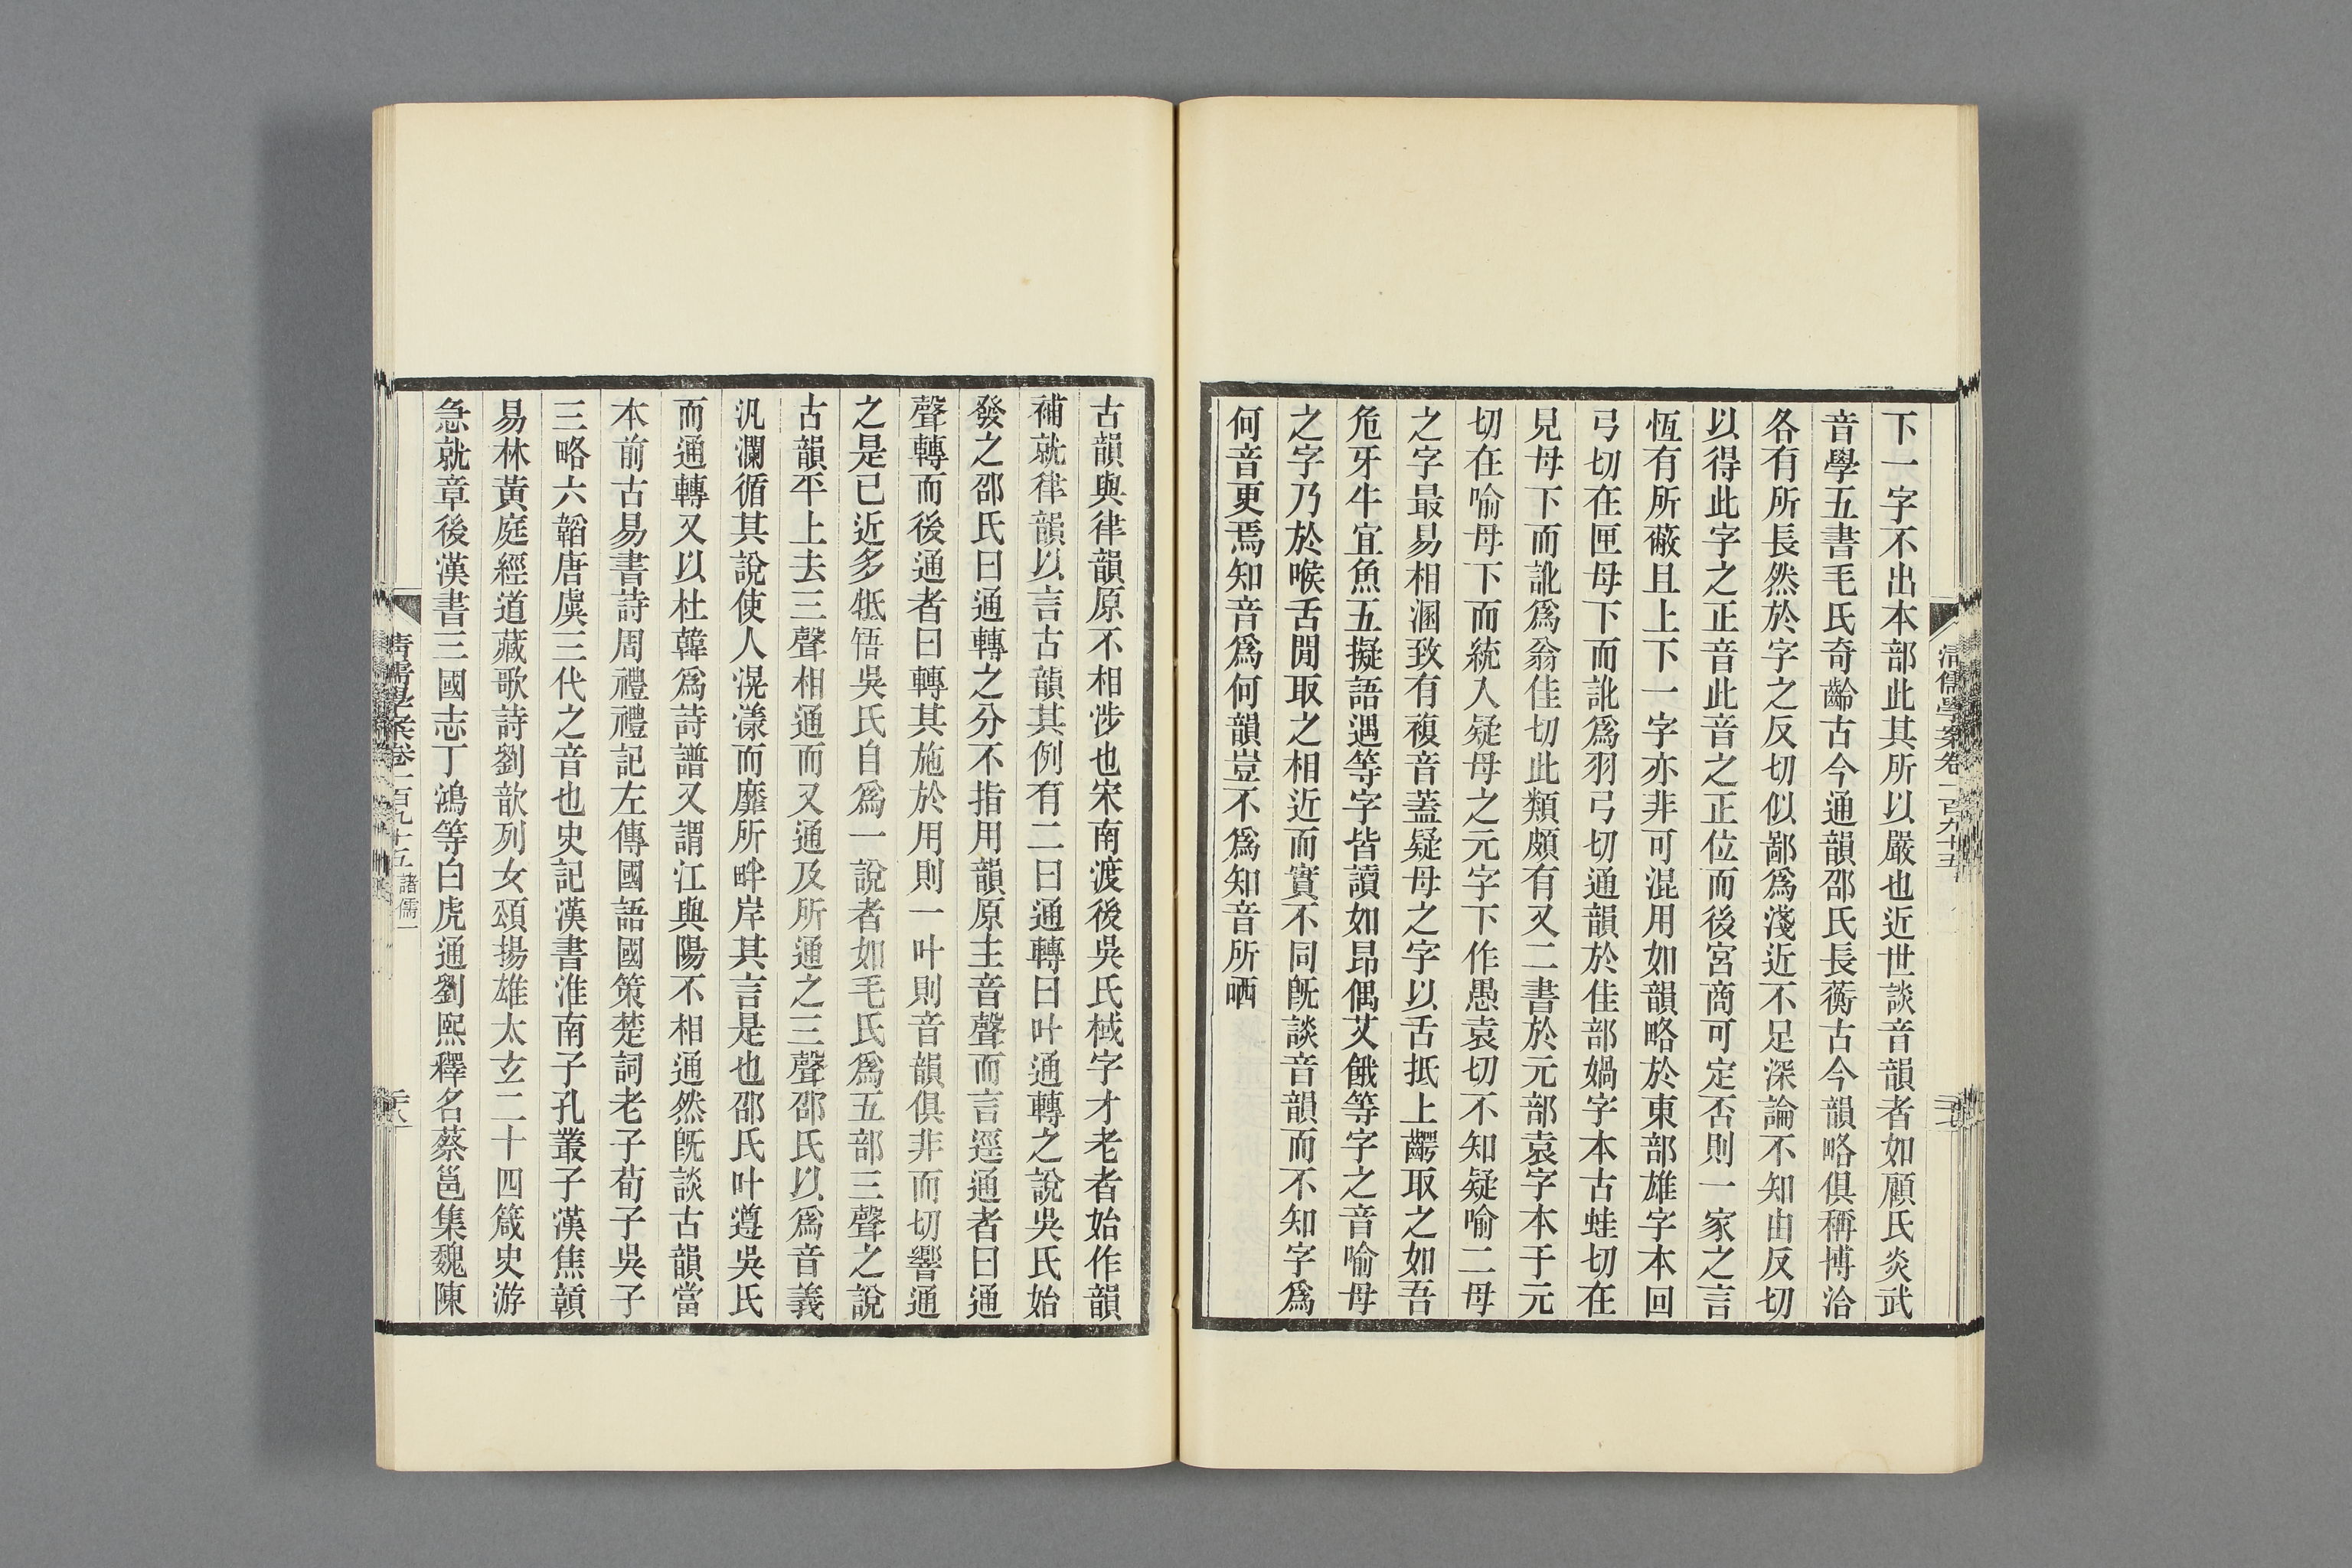 下一字不出本部此其所以嚴也近世談音韻者如顧氏炎武
音學五書毛氏奇齡古今通韻邵氏長蘅古今韻略俱稱博洽
各有所長然於字之反切似鄙為淺近不足深論不知由反切
以得此字之正音此音之正位而後宮商可定否則一家之言
恆有所蔽且上下一字亦非可混用如韻略於東部雄字本回
弓切在匣母下而訛為羽弓切通韻於佳部媧字本古蛙切在
見母下而訛為翁佳切此類頗有又二書於元部袁字本于元
切在喻母下而統入疑母之元字下作愚袁切不知疑喻二母
之字最易相溷致有複音蓋疑母之字以舌抵上齶取之如吾
危牙牛宜魚五擬語遇等字皆讀如昂偶艾餓等字之音喻母
之字乃於喉舌閒取之相近而實不同旣談音韻而不知字為
何音更焉知音為何韻豈不為知音所哂
清儒學案卷一百九十五
古韻與律韻原不相涉也宋南渡後吳氏棫字才老者始作韻
補就律韻以言古韻其例有二曰通轉曰叶通轉之說吳氏始
發之邵氏曰通轉之分不指用韻原主音聲而言逕通者曰通
聲轉而後通者曰轉其施於用則一叶則音韻俱非而切響通
之是已近多牴牾吳氏自為一說者如毛氏為五部三聲之說
古韻平上去三聲相通而又通及所通之三聲邵氏以為音義
汎瀾循其說使人滉瀁而靡所畔岸其言是也邵氏叶遵吳氏
而通轉又以杜韓為詩譜又謂江與陽不相通然旣談古韻當
本前古易書詩周禮禮記左傳國語國策楚詞老子荀子吳子
三略六韜唐虞三代之音也史記漢書淮南子孔叢子漢焦贛
易林黃庭經道藏歌詩劉歆列女頌揚雄太玄二十四箴史游
急就章後漢書三國志丁鴻等白虎通劉熙釋名蔡邕集魏陳
清儒學案卷一百九十五 諸儒一